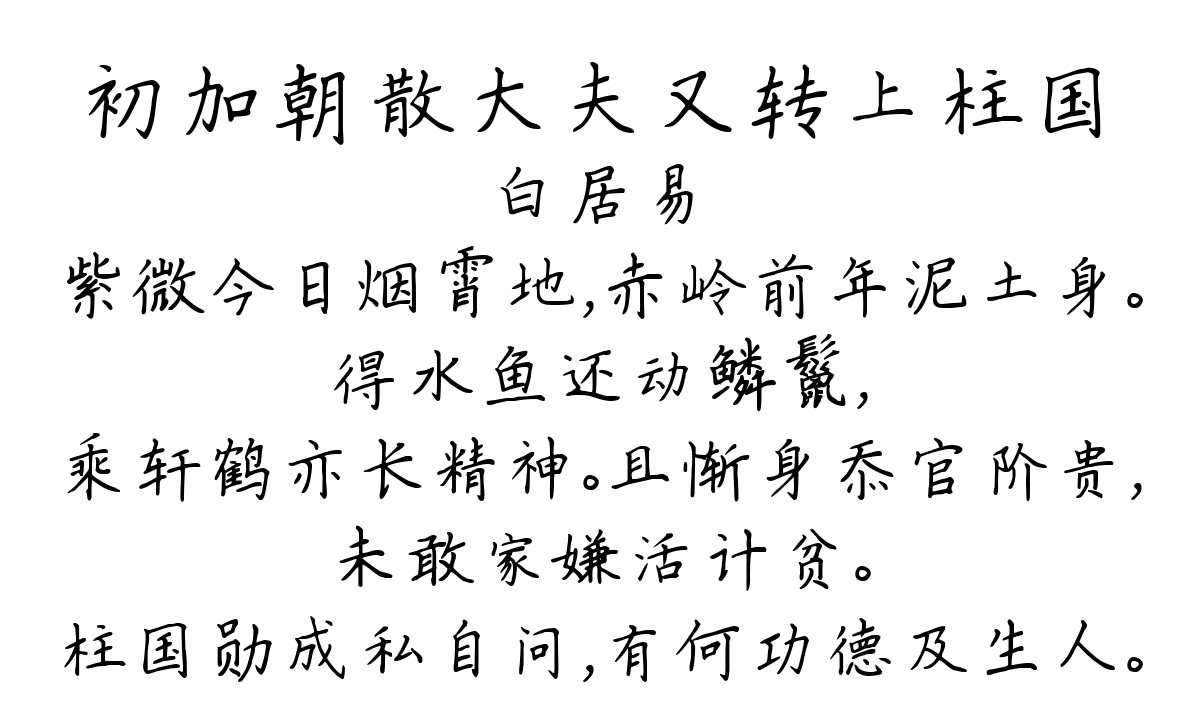 初加朝散大夫又转上柱国
白居易
紫微今日烟霄地,赤岭前年泥土身。
得水鱼还动鳞鬣,
乘轩鹤亦长精神。且惭身忝官阶贵,
未敢家嫌活计贫。
柱国勋成私自问,有何功德及生人。